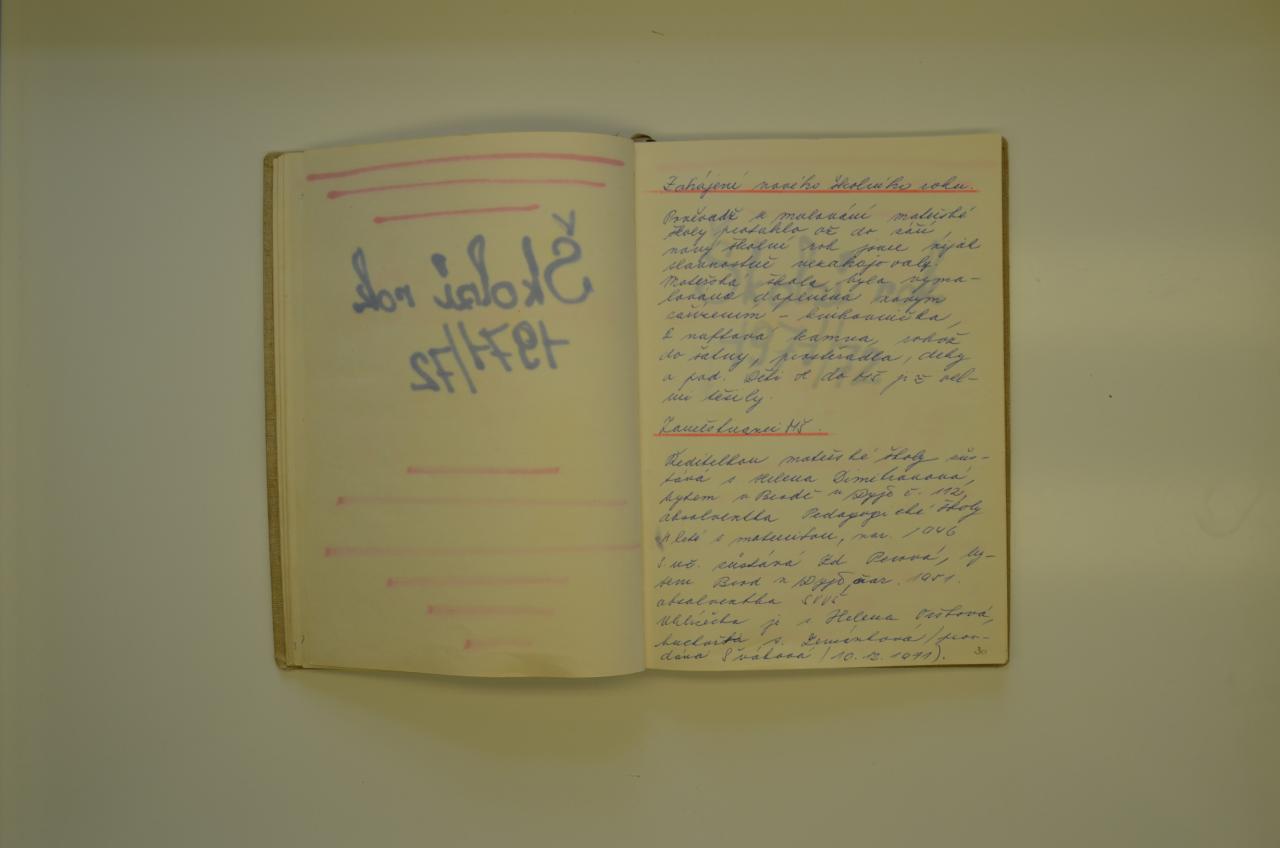 Školní rok
1971/72
Zahájení nového školního roku.
Poněvadž se malování mateřské
školy protáhlo až do září,
nový školní rok jsme nijak
slavnostně nezahajovaly.
Mateřská škola byla vyma-
lována doplněna novým
zařízením – knihovnička,
2 naftová kamna, koberec
do šatny, prostěradla, deky
a pod. Děti se do MŠ již vel-
mi těšily.
Zaměstnanci MŠ.
Ředitelkou mateřské školy zůs-
tává s. Helena
bytem v Brodě n Dyjí č. 112,
absolventka Pedagogické školy
4 leté s maturitou, nar. 1946
S. uč. zůstává Zd. by-
tem Brod n Dyjí, nar. 1951.
absolventka
Uklízečka je s. Helena
kuchařka s. Zemánková / prov-
daná Svátková / 10. 12. 1971).
30